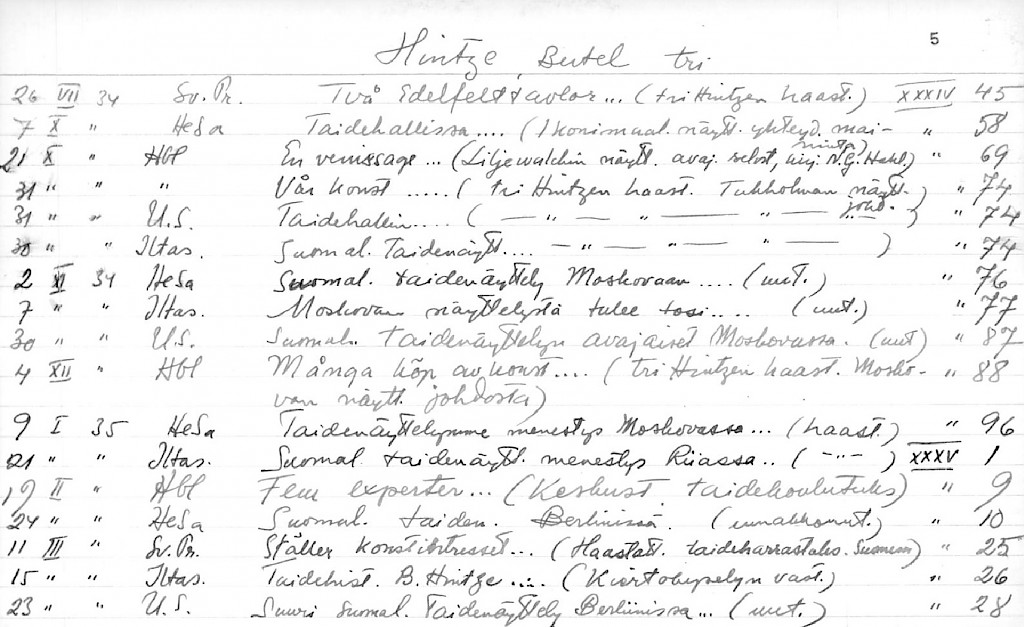 5
Hintze, Bertel tri
26 VII 34 Sv. Pr. Två Edelfelt tavlor... (tri Hintzen haast.) XXXIV 45
7 X " HeSa Taidehallissa.... (Ikonimaal. näytt. yhteyd. mai- " 58
ninta)
21 X " Hbl En venissage... (Liljewalchin näytt. avaj. selost, kirj. N.G. Hahl.) " 69
31 " " " Vår konst ..... (tri Hintzen haast. Tukholman näytt. " 74
johd.)
31 " " U.S. Taidehallin.... ( — " — " — " — " — ) " 74
30 " " Iltas. Suomal. Taidenäytt.... — " — " — " — ) " 74
2 XI 34 HeSa Suomal. taidenäyttely Moskovaan .... (uut.) " 76
7 " " Iltas. Moskovan näyttelystä tulee tosi..... (uut.) " 77
30 " " U.S. Suomal. Taidenäyttelyn avajaiset Moskovassa. (uut) " 87
4 XII " Hbl Många köp av konst.... (tri Hintzen haast. Mosko- " 88
van näytt. johdosta)
9 I 35 HeSa Taidenäyttelymme menestys Moskovassa... (haast.) " 96
21 " " Iltas. Suomal. taidenäytt. menestys Riiassa.. ( —"— ) XXXV 1
19 II " Hbl Fem experter... (Keskust. taidekoulutuks) " 9
24 " " HeSa Suomal. taiden. Berliinissä. (ennakkouut.) " 10
11 III " Sv. Pr. Ställer konstintresset... (Haastatt. taideharrastuks. Suomessa) " 25
15 " " Iltas. Taidehist. B. Hintze .... (Kiertokyselyn vast.) " 26
23 " " U.S. Suuri suomal. Taidenäyttely Berliinissa... (uut.) " 28